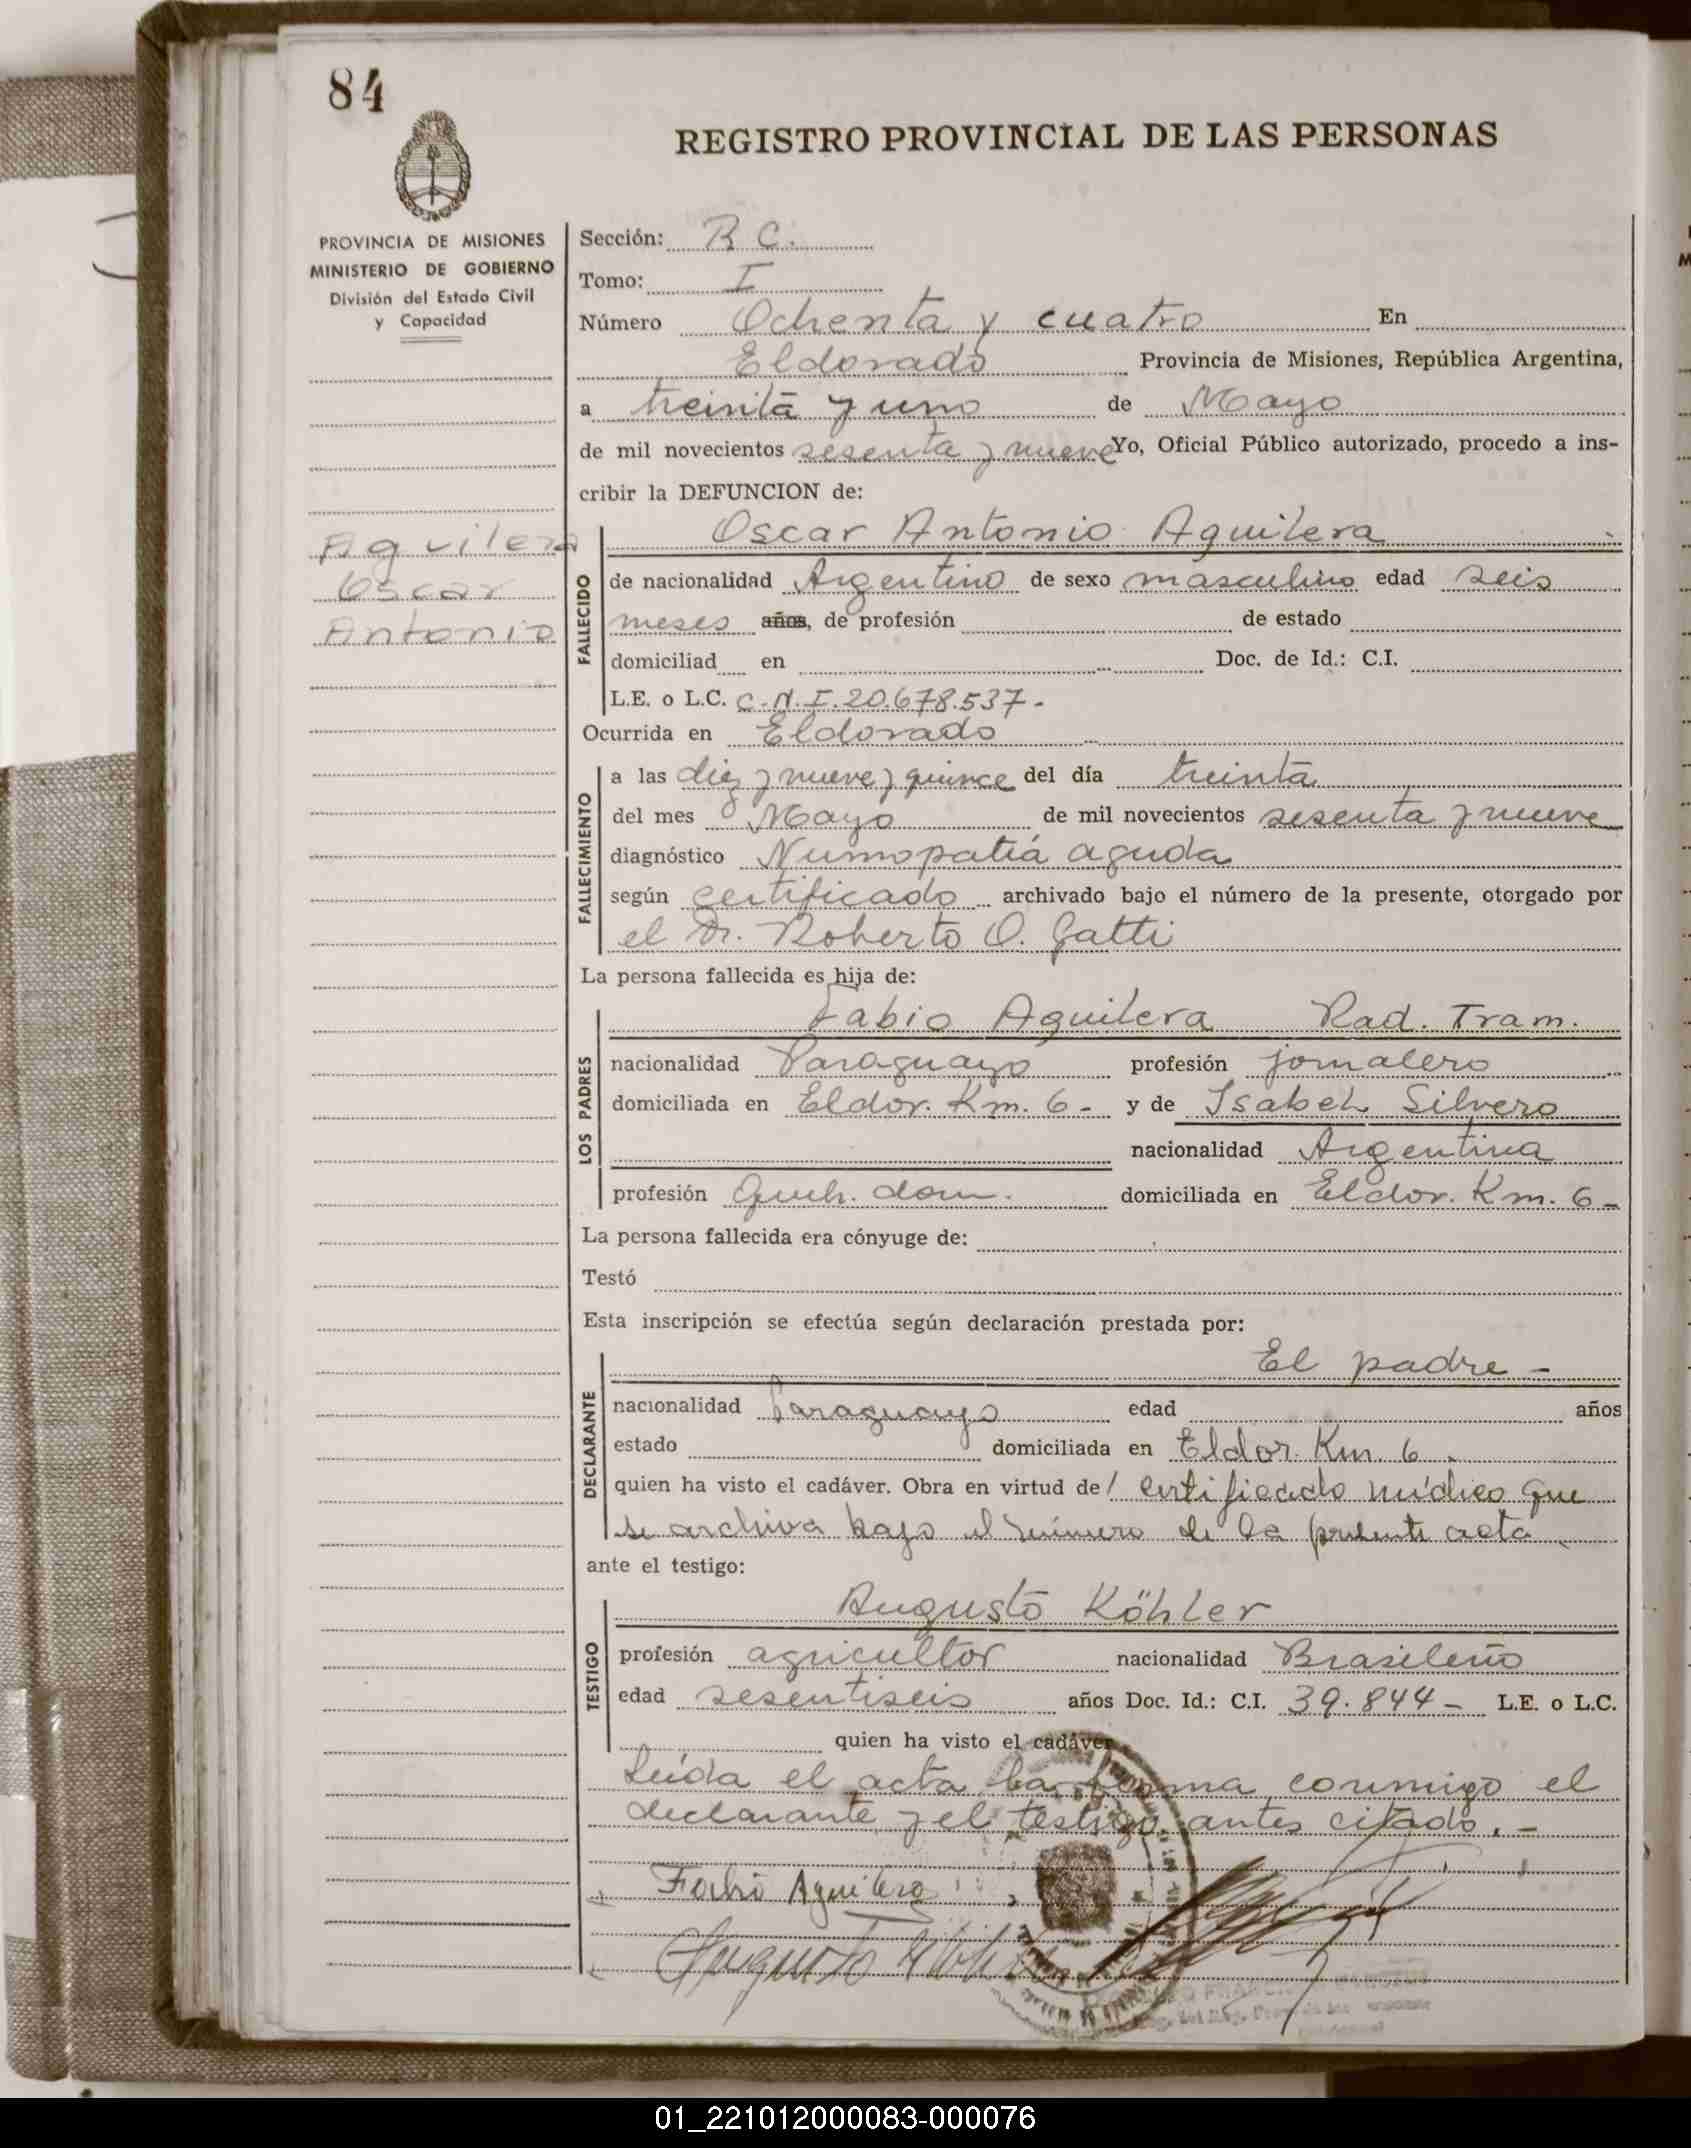 84
REGISTRO PROVINCIAL DE LAS PERSONAS
PROVINCIA DE MISIONES
MINISTERIO DE GOBIERNO
División del Estado Civil
y Capacidad
Aguilera
Oscar
Antonio
Sección: R C.
Tomo: I
Número Ochenta y cuatro En
Eldorado Provincia de Misiones, República Argentina,
a treinta y uno de Mayo
de mil novecientos sesenta y nueve Yo, Oficial Público autorizado, procedo a ins-
cribir la DEFUNCION de:
Oscar Antonio Aguilera
FALLECIDO
de nacionalidad Argentino de sexo masculino edad seis
meses años, de profesión de estado
domiciliad en Doc. de Id.: C.I.
L.E. o L.C. C.N.I. 20.678.537.-
Ocurrida en Eldorado
FALLECIMIENTO
a las diez y nueve y quince del día treinta
del mes Mayo de mil novecientos sesenta y nueve
diagnóstico Numopatía aguda
según certificado archivado bajo el número de la presente, otorgado por
el Dr. Roberto O. Gatti
La persona fallecida es hija de:
LOS PADRES
Fabio Aguilera Rad. Tram.
nacionalidad Paraguayo profesión jornalero
domiciliada en Eldor. Km. 6- y de Isabel Silvero
nacionalidad Argentina
profesión Queh. dom. domiciliada en Eldor. Km. 6-
La persona fallecida era cónyuge de:
Testó
Esta inscripción se efectúa según declaración prestada por:
El padre -
DECLARANTE
nacionalidad Paraguayo edad años
estado domiciliada en Eldor. Km. 6.
quien ha visto el cadáver. Obra en virtud de/ certificado médico que
se archiva bajo el número de la presente acta
ante el testigo:
Augusto Köhler
TESTIGO
profesión agricultor nacionalidad Brasileño
edad sesentiseis años Doc. Id.: C.I. 39.844- L.E. o L.C.
quien ha visto el cadáver
Leída el acta la firma conmigo el
declarante y el testigo antes citado.-
Fabio Aguilera
Augusto Köhler
01_221012000083-000076